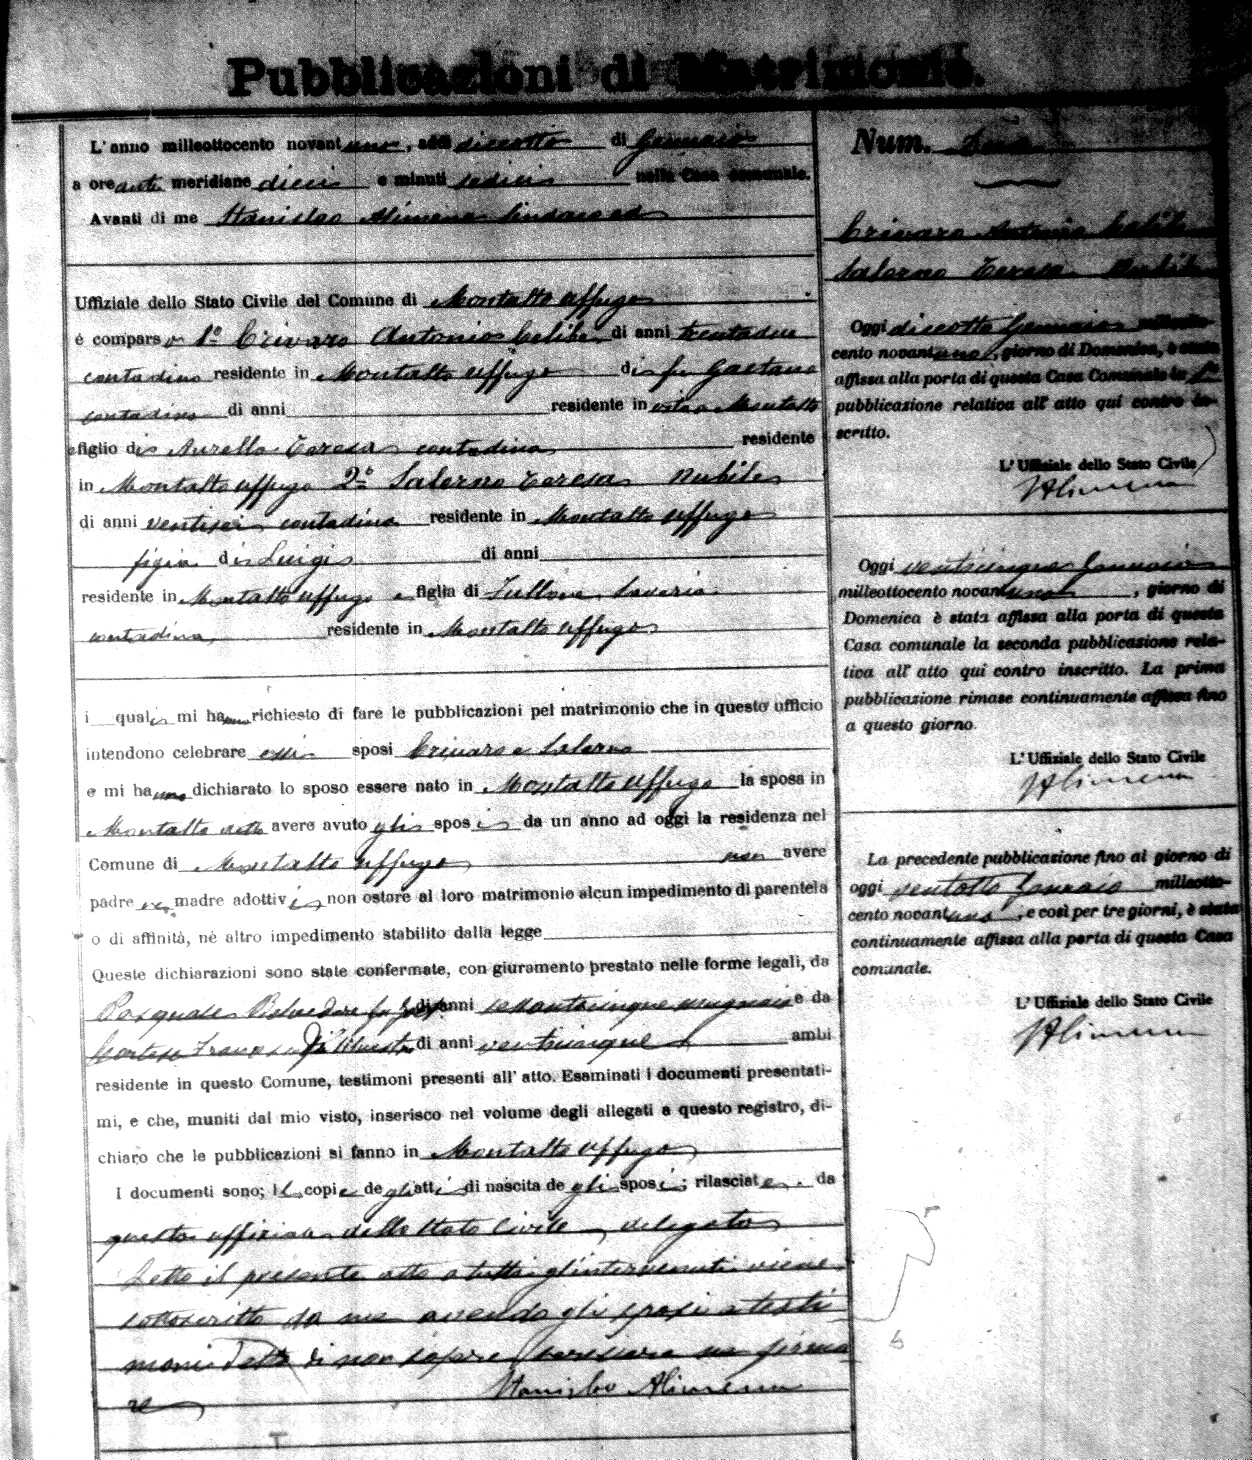 Pubblicazioni di Matrimonio.
L'anno milleottocento novantuno, addì diecotto di Gennaio
a ore anti meridiane dieci e minuti sedici nella Casa comunale.
Avanti di me Stanislao Alimena Sindaco ed
Uffiziale dello Stato Civile del Comune di Montalto Uffugo
è comparso 1º Crivaro Antonio celibe di anni trentadue
contadino residente in Montalto Uffugo di fu Gaetano
contadino di anni residente in Montalto
e figlio di Aurello Teresa contadina residente
in Montalto Uffugo 2º Salerno Teresa nubile
di anni ventisei contadina residente in Montalto Uffugo
figlia di Luigi di anni
residente in Montalto Uffugo e figlia di Saveria
contadina residente in Montalto Uffugo
i quali mi hanno richiesto di fare le pubblicazioni pel matrimonio che in questo ufficio
intendono celebrare essi sposi Crivaro e Salerno
e mi hanno dichiarato lo sposo essere nato in Montalto Uffugo la sposa in
Montalto detto avere avuto gli sposi da un anno ad oggi la residenza nel
Comune di Montalto Uffugo non avere
padre e madre adottivi non ostare al loro matrimonio alcun impedimento di parentela
o di affinità, nè altro impedimento stabilito dalla legge
Queste dichiarazioni sono state confermate, con giuramento prestato nelle forme legali, da
Pasquale Belvedere fu di anni sessantacinque mugnaio e da
Cortese di anni venticinque ambi
residente in questo Comune, testimoni presenti all' atto. Esaminati i documenti presentati-
mi, e che, muniti dal mio visto, inserisco nel volume degli allegati a questo registro, di-
chiaro che le pubblicazioni si fanno in Montalto Uffugo
I documenti sono; le copie degli atti di nascita degli sposi; rilasciate da
questo uffizio dello Stato Civile delegato
Letto il presente atto a tutti gl'intervenuti viene
sottoscritto da me avendo gli sposi e testi
moni detto di non sapere firma
re
Stanislao Alimena
Num.
Crivaro Antonio Celibe
Salerno Teresa Nubile
Oggi diecotto Gennaio milleotto-
cento novantuno, giorno di Domenica, è stata
affissa alla porta di questa Casa Comunale la 1ª
pubblicazione relativa all' atto qui contro in-
scritto.
L' Uffiziale dello Stato Civile
SAlimena
Oggi venticinque Gennaio
milleottocento novantuno, giorno di
Domenica è stata affissa alla porta di questa
Casa comunale la seconda pubblicazione rela-
tiva all' atto qui contro inscritto. La prima
pubblicazione rimase continuamente affissa fino
a questo giorno.
L' Uffiziale dello Stato Civile
SAlimena
La precedente pubblicazione fino al giorno di
oggi ventotto Gennaio milleotto-
cento novantuno, e così per tre giorni, è stata
continuamente affissa alla porta di questa Casa
comunale.
L' Uffiziale dello Stato Civile
SAlimena